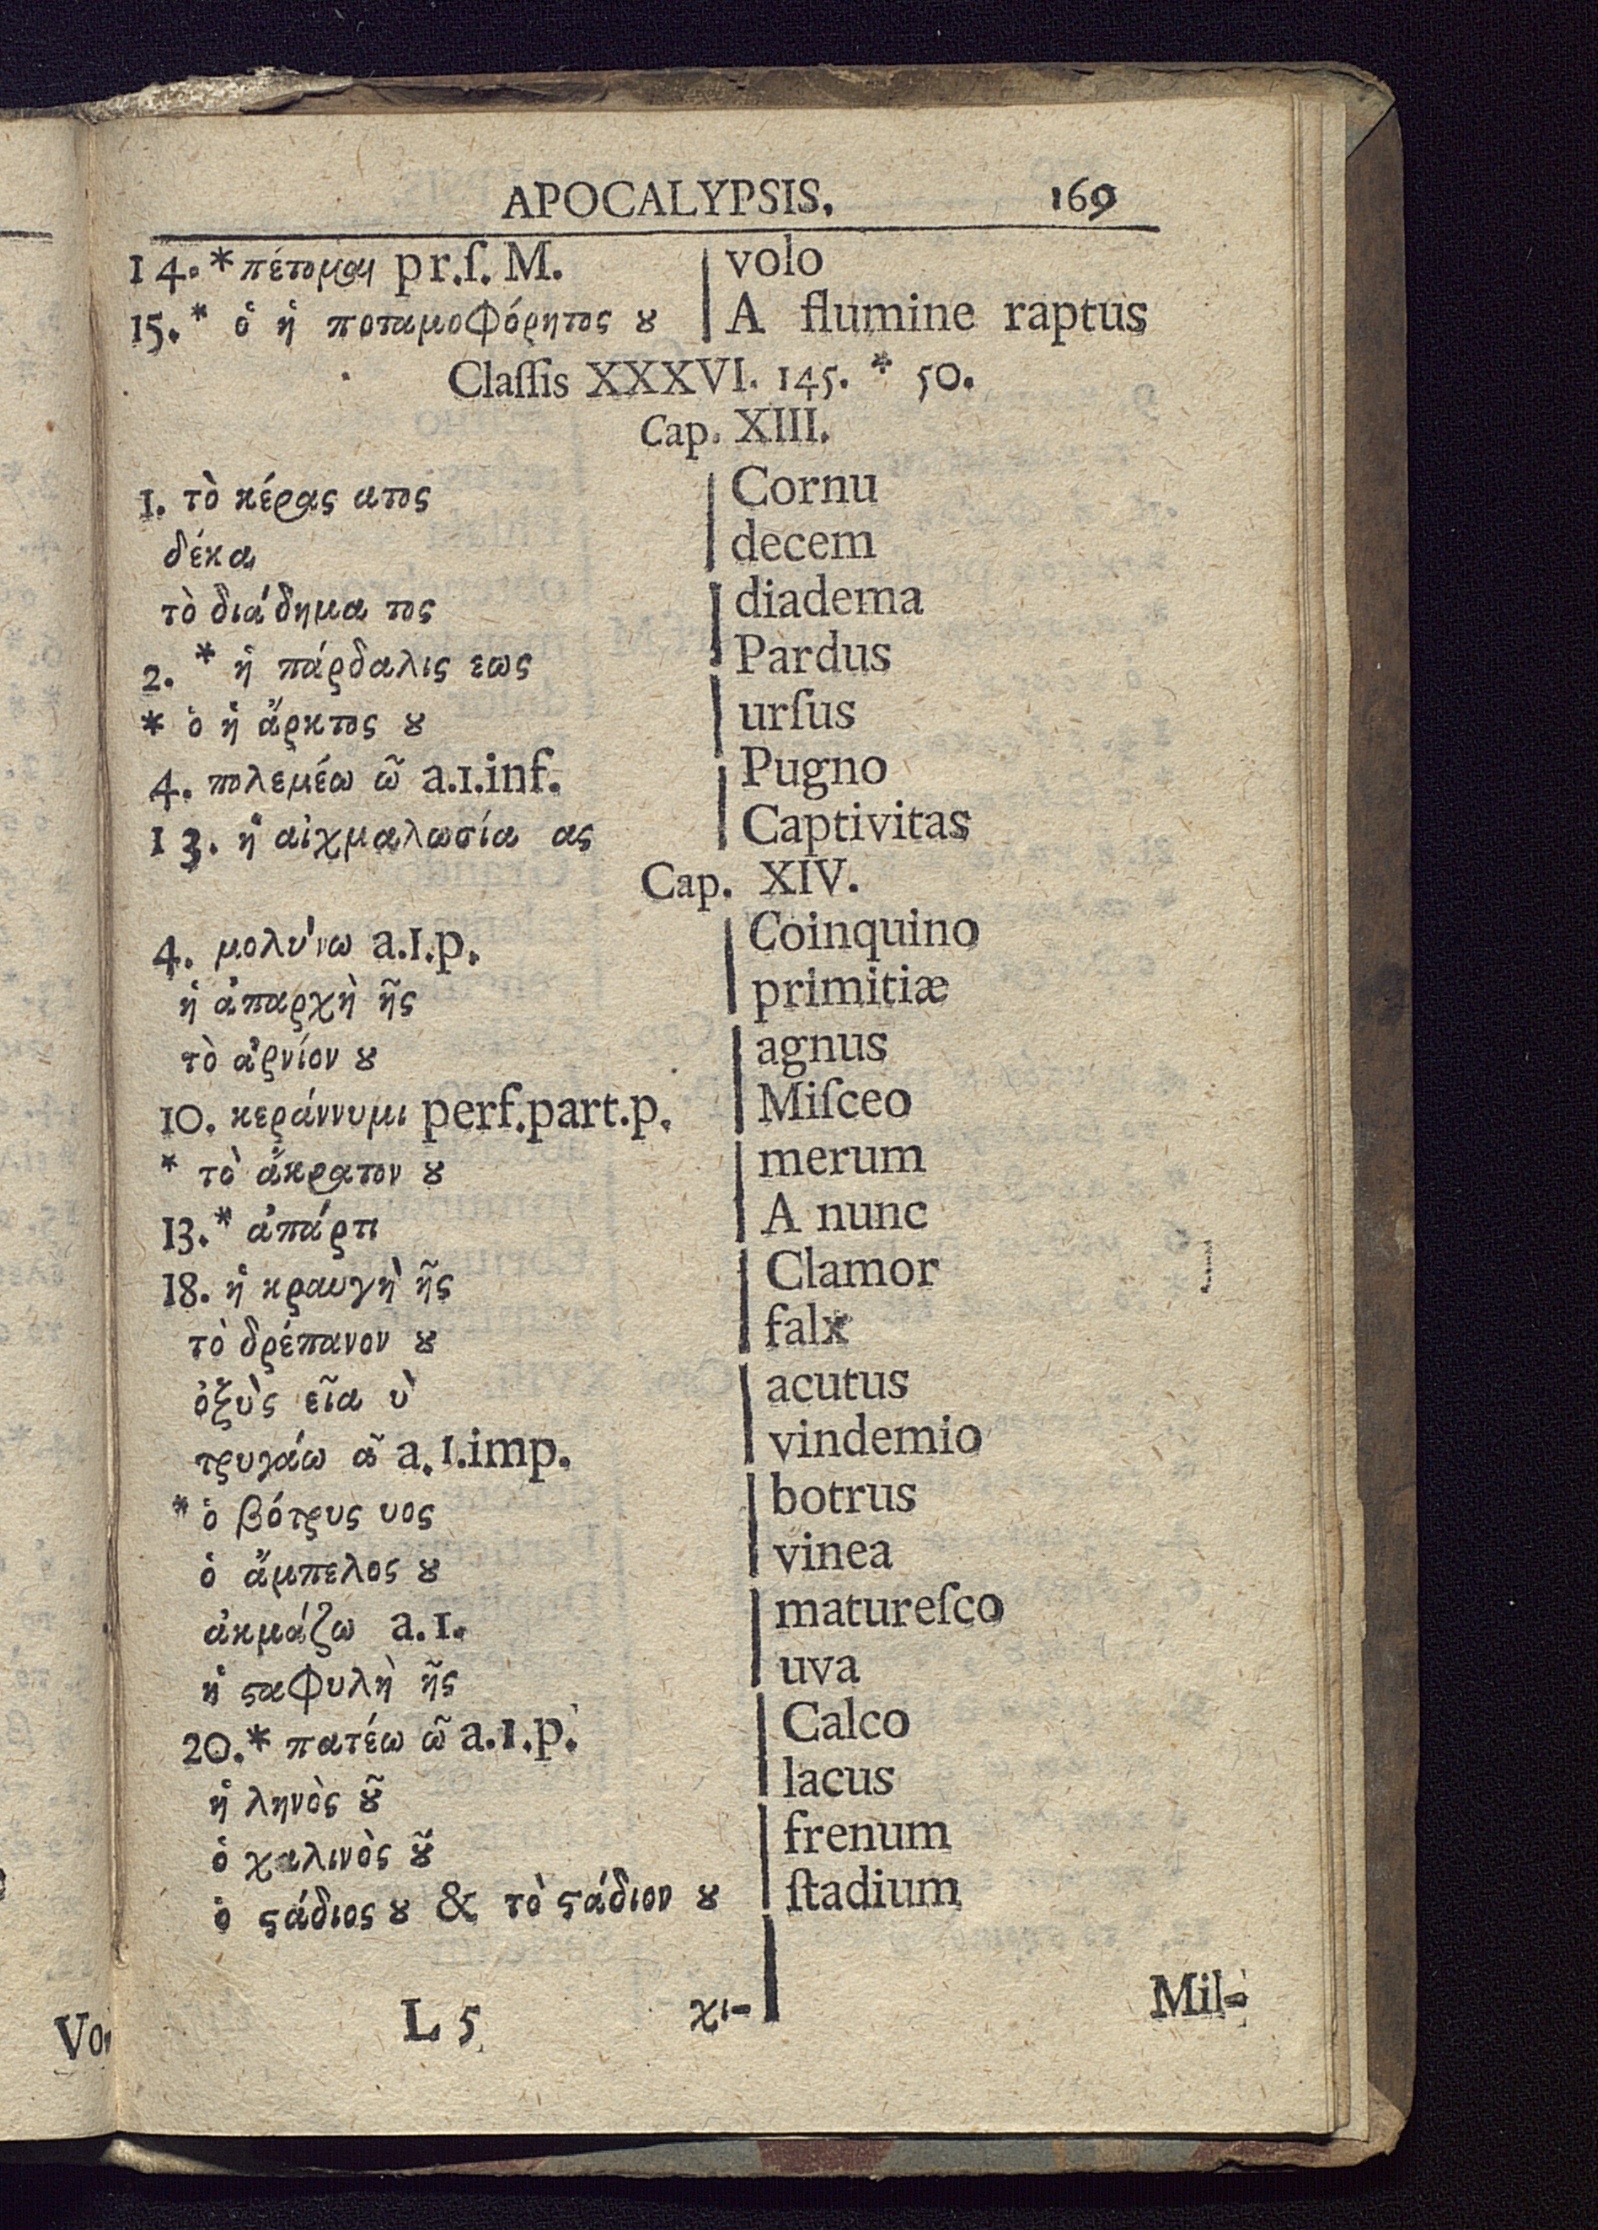 APOCALYPSIS. 169
14. * πέτομαι pr.ſ. M. volo
15. * ὁ ἡ ποταμοφόρητος ȣ A flumine raptus
Claſſis XXXVI. 145. * 50.
Cap. XIII.
1. τὸ κέρας ατος Cornu
δέκα decem
τὸ διάδημα τος diadema
2. * ἡ πάρδαλις εως Pardus
* ὁ ἡ ἄρκτος ȣ urſus
4. πολεμέω ῶ a.1.inf. Pugno
13. ἡ αἰχμαλωσία ας Captivitas
Cap. XIV.
4. μολύνω a.1.p. Coinquino
ἡ ἀπαρχὴ ῆς primitiæ
τὸ ἀρνίον ȣ agnus
10. κεράννυμι perf.part.p. Miſceo
* τὸ ἄκρατον ȣ merum
13. * ἀπάρτι A nunc
18. ἡ κραυγὴ ῆς Clamor
τὸ δρέπανον ȣ falx
ὀξὺς εῖα ὺ acutus
τρυγάω ῶ a.1.imp. vindemio
* ὁ βότρυς υος botrus
ὁ ἄμπελος ȣ vinea
ἀκμάζω a.1. matureſco
ἡ ϛαφυλὴ ῆς uva
20. * πατέω ῶ a.1.p. Calco
ἡ ληνὸς ȣ͂ lacus
ὁ χαλινὸς ȣ͂ frenum
ὁ ϛάδιος ȣ & τὸ ϛάδιον ȣ ſtadium
L 5 χι- Mil-
Vo-